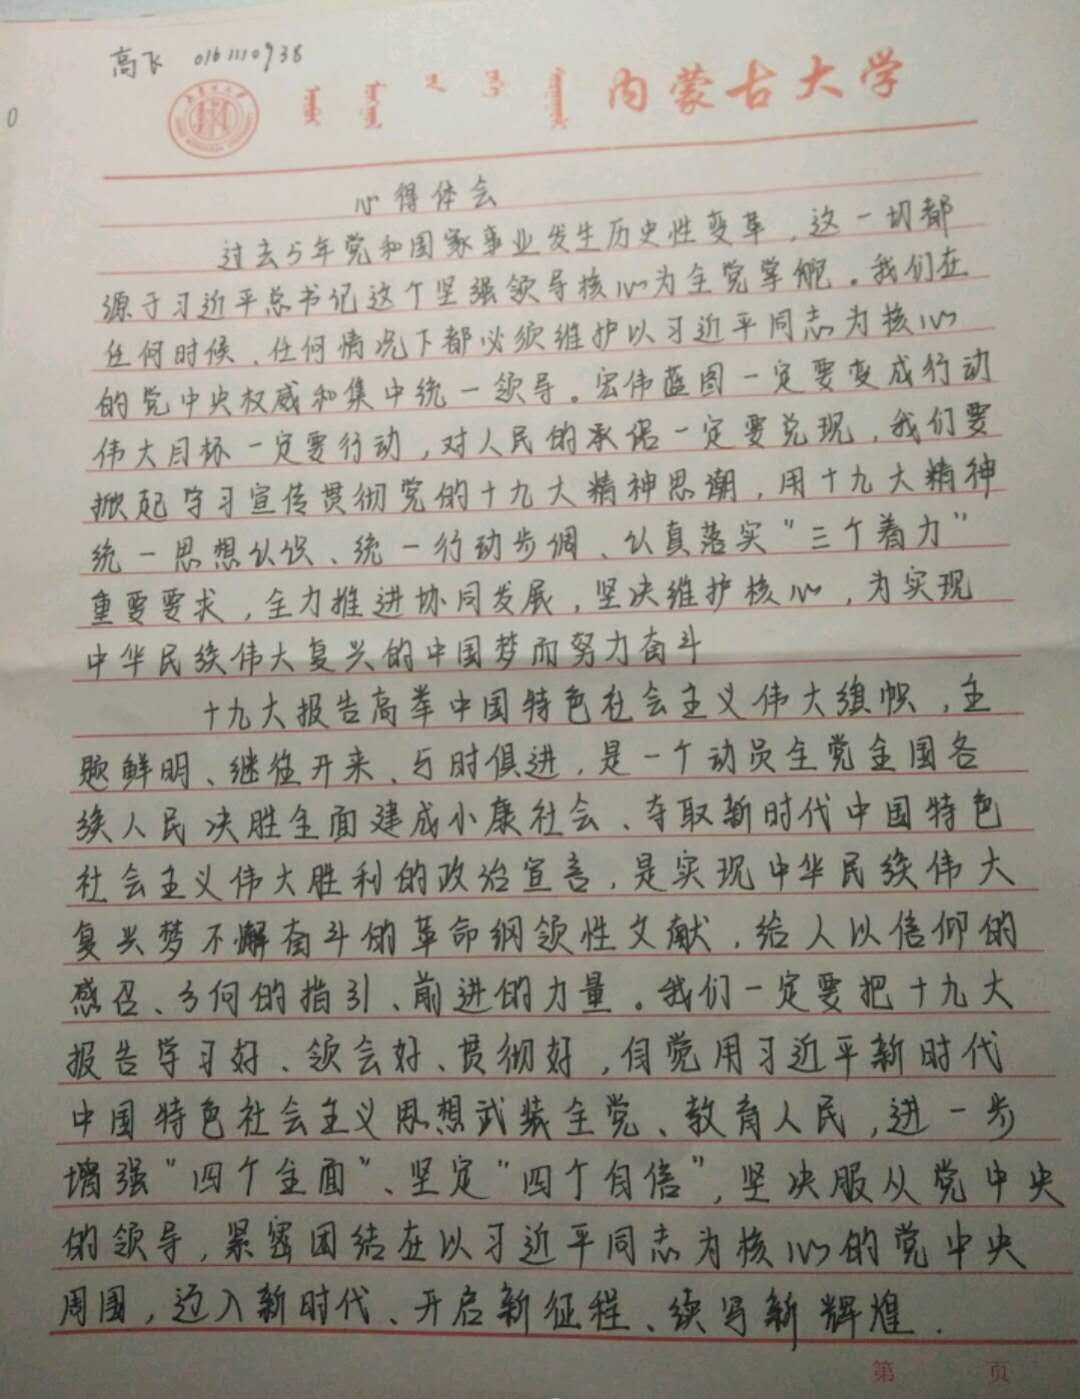 高飞 0161110938
内蒙古大学
心得体会
过去5年党和国家事业发生历史性变革，这一切都
源于习近平总书记这个坚强领导核心为全党掌舵。我们在
任何时候、任何情况下都必须维护以习近平同志为核心
的党中央权威和集中统一领导。宏伟蓝图一定要变成行动
伟大目标一定要行动，对人民的承诺一定要兑现，我们要
掀起学习宣传贯彻党的十九大精神思潮，用十九大精神
统一思想认识、统一行动步调、认真落实“三个着力”
重要要求，全力推进协同发展，坚决维护核心，为实现
中华民族伟大复兴的中国梦而努力奋斗
十九大报告高举中国特色社会主义伟大旗帜，主
题鲜明、继往开来、与时俱进，是一个动员全党全国各
族人民决胜全面建成小康社会、夺取新时代中国特色
社会主义伟大胜利的政治宣言，是实现中华民族伟大
复兴梦不懈奋斗的革命纲领性文献，给人以信仰的
感召、方向的指引、前进的力量。我们一定要把十九大
报告学习好、领会好、贯彻好，自觉用习近平新时代
中国特色社会主义思想武装全党、教育人民，进一步
增强“四个全面”、坚定“四个自信”，坚决服从党中央
的领导，紧密团结在以习近平同志为核心的党中央
周围，迈入新时代、开启新征程、续写新辉煌．
第 页